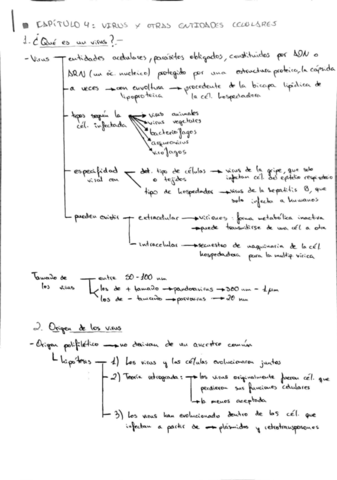 CAPÍTULO 4: VIRUS Y OTRAS ENTIDADES CELULARES
1. ¿Qué es un virus?.-
- Virus entidades acelulares, parásitos obligados, constituidos por ADN o
ARN (un ác. nucleico) protegido por una estructura proteica, la cápsida
a veces → con envoltura → procedente de la bicapa lipídica de
lipoproteica la cél. hospedadora
tipos según la → virus animales
cél. infectada → virus vegetales
→ bacteriófagos
→ virófagos
especificidad det. tipo de células → virus de la gripe, que solo
viral con o tejidos infectan cél. del epitelio respiratorio
tipo de hospedador → virus de la hepatitis B, que
solo infecta a humanos
pueden existir extracelular → viriones: forma metabólica inactiva
→ puede transmitirse de una cél a otra
intracelular → secuestro de maquinaria de la cél.
hospedadora para la multip. vírica
Tamaño de entre 50 - 100 nm
los virus los de + tamaño → pandoravirus → 300 nm - 1 µm
los de - tamaño → parvovirus → 20 nm
2. Origen de los virus
- Origen polifilético → no derivan de un ancestro común
Hipótesis 1) Los virus y las células evolucionaron juntos
2) Teoría retrógrada: → los virus originalmente fueron cél. que
perdieron sus funciones celulares
→ la menos aceptada
3) Los virus han evolucionado dentro de las cél. que
infectan a partir de → plásmidos y retrotransposones